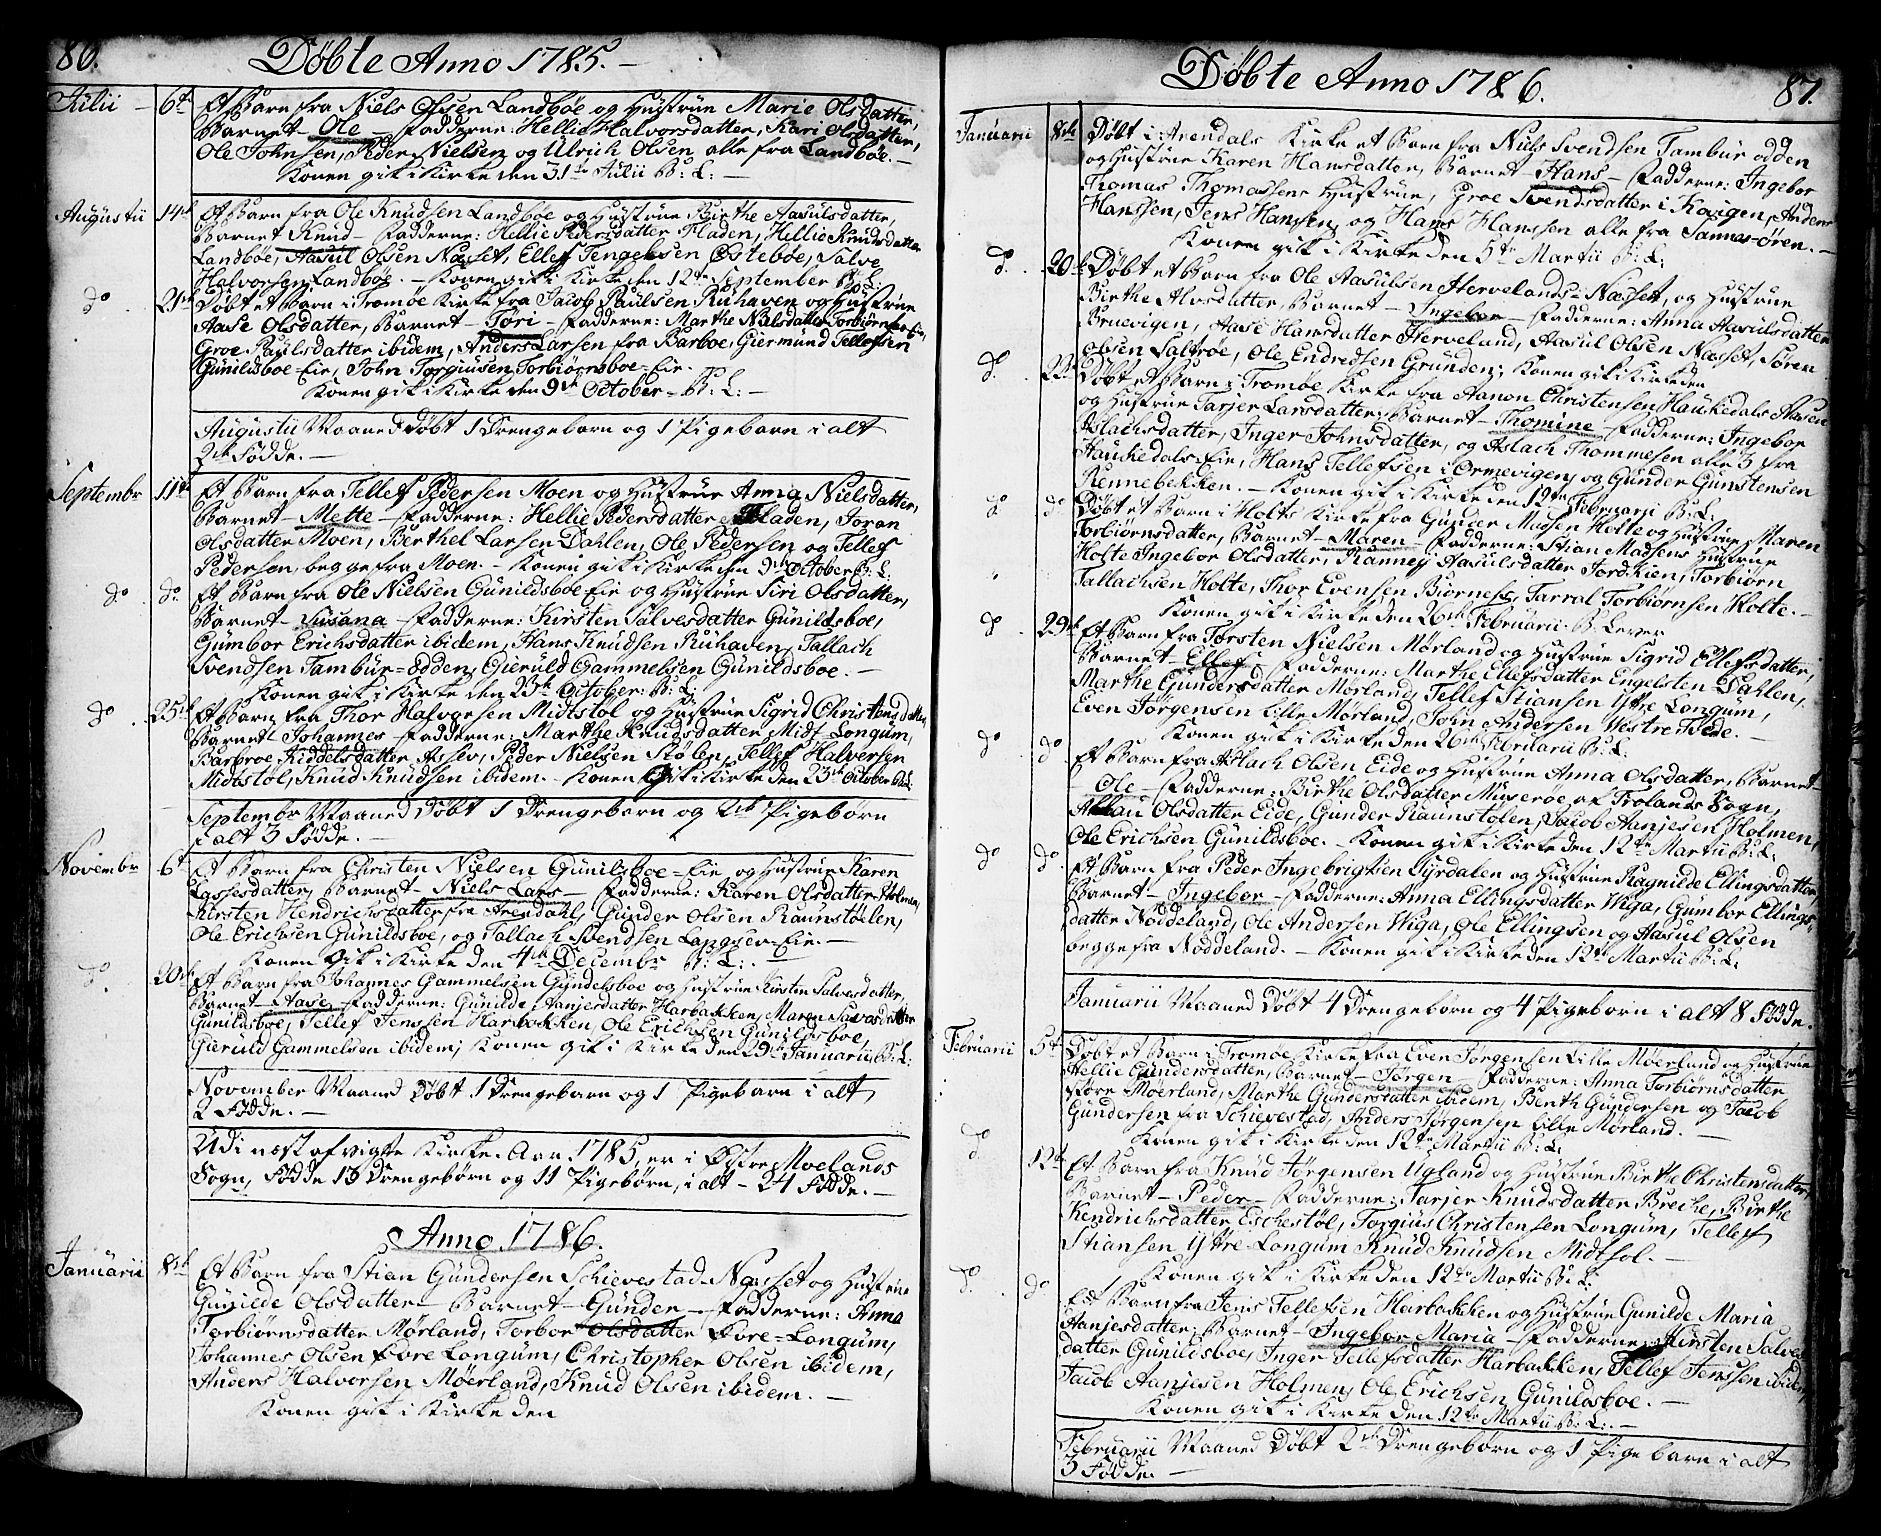 86. Døbte Anno 1785. —
Julii — 6te Et Barn fra Niels Olsen Landbøe og Hustrue Marie Olsdatter,
Barnet — Ole — Fadderne: Hellie Halvorsdatter, Kari Olsdatter,
Ole Johnsen, Peder Nielsen og Ulrich Olsen alle fra Landbøe. —
Konen gik i Kirke den 31te Julii B: L: —
Augustii 14de Et Barn fra Ole Knudsen Landbøe og Hustrue Birthe Aasulsdatter,
Barnet Knud — Fadderne: Hellie Pedersdatter Fladen, Hellie Knudsdatter
Landbøe, Aasul Olsen Næset, Ellef Tengelsen Østebøe, Salve
Halvorsen Landbøe. — Konen gik i Kirke den 12te September B: L:
do 21de Døbt et Barn i Tromøe Kirke fra Jacob Paulsen Ruhaven og Hustrue
Aase Olsdatter, Barnet — Töri — Fadderne: Marthe Nielsdatter Torbiørnsboe Eie,
Groe Paulsdatter ibidem, Anders Larsen fra Barboe, Giermund Tellefsen
Gunildsboe-Eie, John Torgiusen Torbiørnsboe-Eie.
Konen gik i Kirke den 9de October — B: L: —
Augustii Maaned Døbt 1 Drengebarn og 1 Pigebarn i alt
2de Födde. —
Septembr 11te Et Barn fra Tellef Pedersen Moen og Hustrue Anna Nielsdatter,
Barnet — Mette — Fadderne: Hellie Pedersdatter Fladen, Joran
Olsdatter Moen, Berthel Larsen Dahlen, Ole Pedersen og Tellef
Pedersen, begge fra Moen. — Konen gik i Kirke den 9de October B: L:
do do Et Barn fra Ole Nielsen Gunildsboe-Eie og Hustrue Siri Olsdatter,
Barnet — Susana — Fadderne: Kirsten Salvesdatter Gunildsboe,
Gumbor Erichsdatter ibidem, Hans Knudsen Ruhaven, Tallach
Svendsen Tambur-Odden, Gieruld Gammelsen Gunildsboe. —
Konen gik i Kirke den 23de October: B: L:
do 25de Et Barn fra Thor Halvorsen Midtstøl og Hustrue Sigrid Christensdatter,
Barnet Johannes — Fadderne: Marthe Knudsdatter Midt Longum,
Barbroe Kiddelsdatter Assev, Peder Nielsen Stølen, Tellef Halversen
Midtstøl, Knud Knudsen ibidem. — Konen gik i Kirke den 23de October B: L:
Septembr Maaned Døbt 1 Drengebarn og 2de Pigebørn
i alt 3 Födde. —
Novembr 6te Et Barn fra Christen Nielsen Gunilsboe-Eie og Hustrue Karen
Lassesdatter, Barnet — Niels Lass — Fadderne: Karen Olsdatter Holmen,
Kirsten Hendrichsdatter fra Arendahl, Gunder Olsen Raunstølen,
Ole Erichsen Gunildsboe, og Tallach Svendsen Langsev-Eie. —
Konen gik i Kirke den 4de Decembr B: L: —
do 20de Et Barn fra Johannes Gammelsen Gundelsboe og Hustrue Kirsten Salvesdatter,
Barnet — Aase — Fadderne: Gunilde Aanjesdatter Harbakken, Maren Salvesdatter
Gunildsboe, Tellef Jenssen Harbakken, Ole Erichsen Gunildsboe,
Gieruld Gammelsen ibidem; Konen gik i Kirke den 29de Januarii B: L:
November Maaned Døbt 1 Drengebarn og 1 Pigebarn i alt
2 Födde. —
Udi næst afvigte Kirke-Aar 1785, er i Østre Moelands
Sogn, Födde 13 Drengebørn og 11 Pigebørn, i alt — 24 Födde. —
Anno 1786.
Januarii 8de Et Barn fra Stian Gundersen Schievestad Næsset og Hustrue
Gunilde Olsdatter — Barnet — Gunder — Fadderne: Anna
Torbiørnsdatter Mørland, Torbor Olsdatter Fore-Longum,
Johannes Olsen Fore Longum, Christopher Olsen ibidem,
Anders Halvorsen Møerland, Knud Olsen ibidem. —
Konen gik i Kirke den
Døbte Anno 1786. 87.
Januarii 8de Døbt i Arendals Kirke et Barn fra Niels Svendsen Tambur odden
og Hustrue Karen Hansdatter, Barnet — Hans — Fadderne: Ingebor
Thomas Thomassens Hustrue, Groe Svendsdatter i Kaigen, Anders
Hanssen, Jens Hanssen og Hans Hanssen alle fra Sannes-øren. —
Konen gik i Kirke den 5te Martii B: L:
do 20de Døbt et Barn fra Ole Aasulsen Hervelands-Næsset, og Hustrue
Birthe Alvsdatter, Barnet — Ingebor — Fadderne: Anna Aasulsdatter
Bruevigen, Aase Hansdatter Herveland, Aasul Olsen Næsset, Søren
Olsen Saltrøe, Ole Endresen Grunden; Konen gik i Kirke den
do 22de Døbt et Barn i Tromøe Kirke fra Aanon Christensen Haukedals Aasen
og Hustrue Tarjer Larsdatter; Barnet — Thomine — Fadderne: Ingebor
Aslachsdatter, Inger Johnsdatter, og Aslach Thommesen alle 3 fra
Haukedals-Eie, Hans Tellefsen i Ormevigen, og Gunder Gunstensen
Rennebekken. — Konen gik i Kirke den 19de Februarii B: L:
do do Døbt et Barn i Holts Kirke fra Gunder Madsen Holte og Hustrue Maren
Torbiørnsdatter, Barnet — Maren — Fadderne: Stian Madsens Hustrue
Holte Ingebor Olsdatter, Ranney Aasulsdatter Jordkien, Torbiørn
Tallachsen Holte, Thor Evensen Biørnes, Tarral Torbiørnsen Holte. —
Konen gik i Kirke den 26de Februarii B: L:
do 29de Et Barn fra Torsten Nielsen Mørland og Hustrue Sigrid Ellefsdatter,
Barnet — Ellef — Fadderne: Marthe Ellefsdatter Engelsten Dahlen,
Marthe Gundersdatter Mørland, Tellef Stiansen Yttre Longum,
Even Jørgensen Lille Mørland, John Andersen Vestre Bøe. —
Konen gik i Kirke den 26de Februarii B: L:
do do Et Barn fra Aslach Olsen Eide og Hustrue Anna Olsdatter, Barnet
— Ole — Fadderne: Birthe Olsdatter Muserøe af Trolands Sogn,
Olsdatter Eide, Gunder Raunstølen, Jacob Aanjesen Holmen,
Ole Erichsen Gunildsboe. — Konen gik i Kirke den 12te Martii B: L:
do do Et Barn fra Peder Ingebrigtsen Syrdalen og Hustrue Ragnilde Ellingsdatter,
Barnet — Ingebor — Fadderne: Anna Ellingsdatter Wiga, Gumbor Ellings-
datter Nöddeland, Ole Andersen Wiga, Ole Ellingsen og Aasul Olsen
begge fra Nöddeland. — Konen gik i Kirke den 12te Martii B: L:
Januarii Maaned Døbt 4 Drengebørn og 4 Pigebørn i alt 8 Födde.
Februarii 5te Døbt et Barn i Tromøe Kirke fra Even Jørgensen Lille Møerland og Hustrue
Hellie Gundersdatter, Barnet — Jørgen — Fadderne: Anna Torbiørnsdatter
Store Møerland, Marthe Gundersdatter ibidem, Benth Gundersen og Jacob
Gundersen fra Schievestad, Anders Jørgensen Lille Mørland. —
Konen gik i Kirke den 12te Martii B: L:
do 12te Et Barn fra Knud Jørgensen Ugland og Hustrue Birthe Christensdatter,
Barnet — Peder — Fadderne: Tarjer Knudsdatter Breche, Birthe
Hendrichsdatter Eschestøl, Torgius Christensen Longum, Tellef
Stiansen Yttre Longum Knud Knudsen Midtsol. —
Konen gik i Kirke den 12te Martii B: L:
do do Et Barn fra Jens Tellefsen Harbakken og Hustrue Gunilde Maria
Aanjesdatter; Barnet — Ingebor Maria — Fadderne: Kirsten Salves-
datter Gunildsboe, Inger Tellefsdatter Harbakken, Tellef Jenssen ibidem,
Jacob Aanjesen Holmen, Ole Erichsen Gunildsboe. —
Konen gik i Kirke den 12te Martii B: L: —
Februarii Maaned Døbt 2de Drengebørn og 1 Pigebarn i alt
3 Födde. —